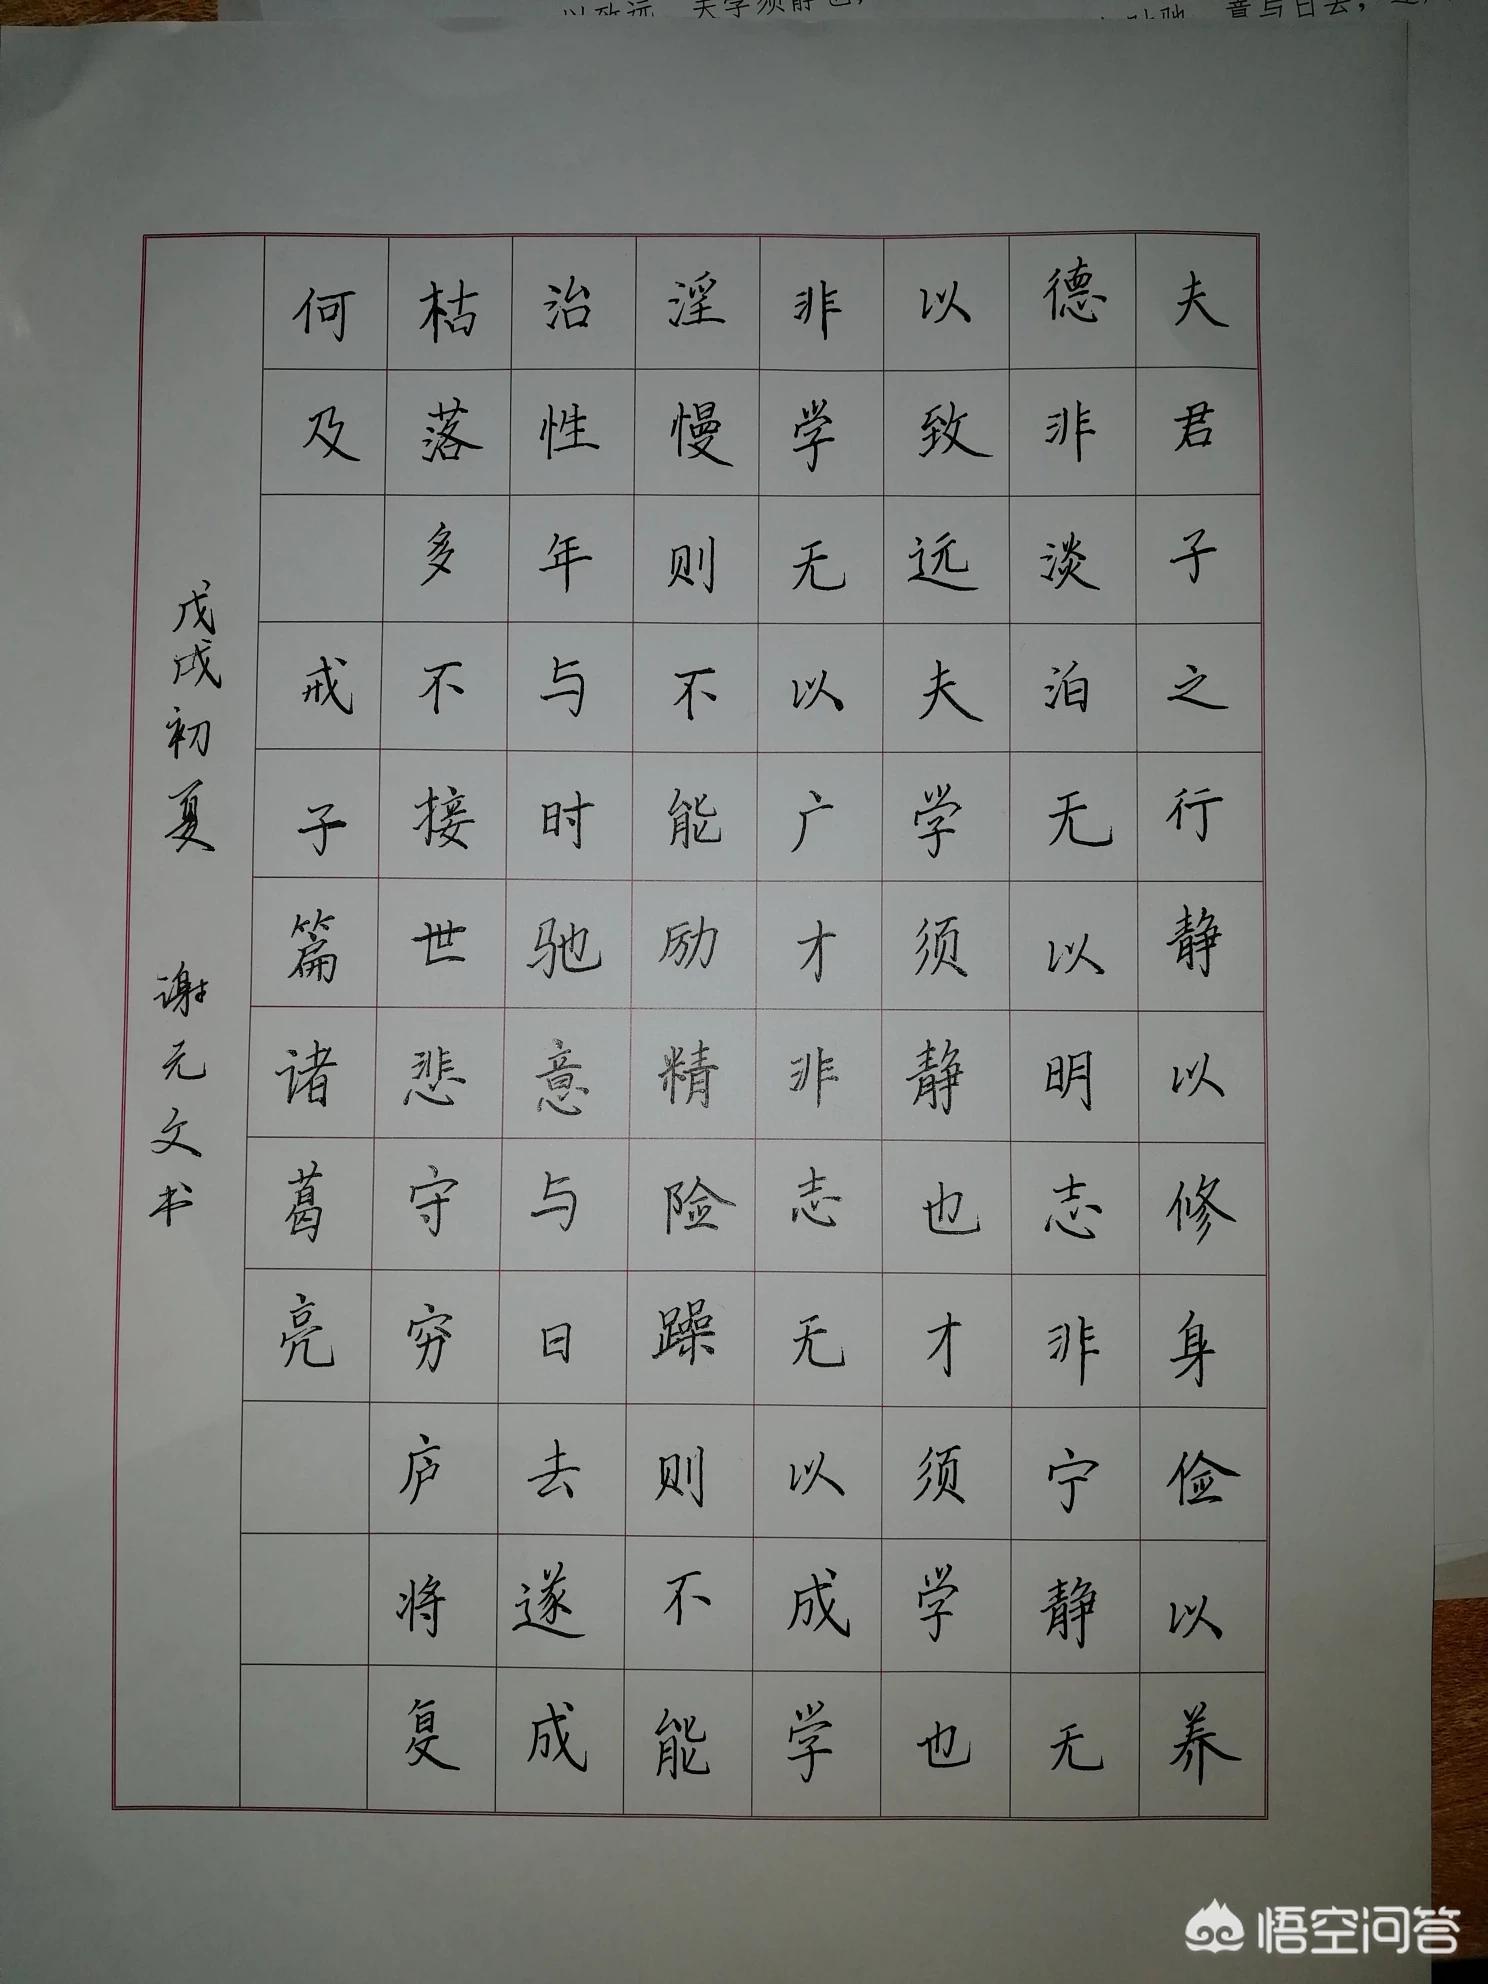 以致远 夫学须静也,
意与日去,
夫君子之行静以修身俭以养
德非淡泊无以明志非宁静无
以致远夫学须静也才须学也
非学无以广才非志无以成学
淫慢则不能励精险躁则不能
治性年与时驰意与日去遂成
枯落多不接世悲守穷庐将复
何及 戒子篇诸葛亮
戊戌初夏 谢元文书
悟空问答